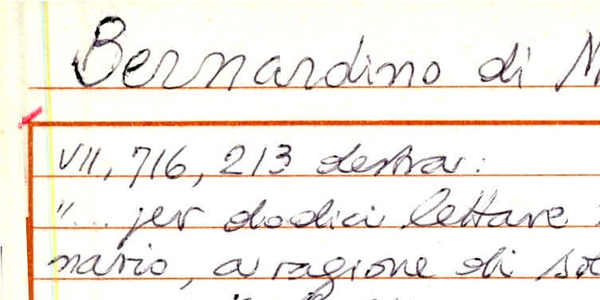 Bernardino di
VII, 716, 213 destra:
"... per dodici lettare
nario, a ragione di